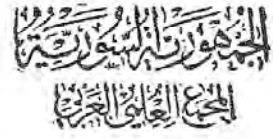 الجمهورية السورية
المجمع العلمي العربي